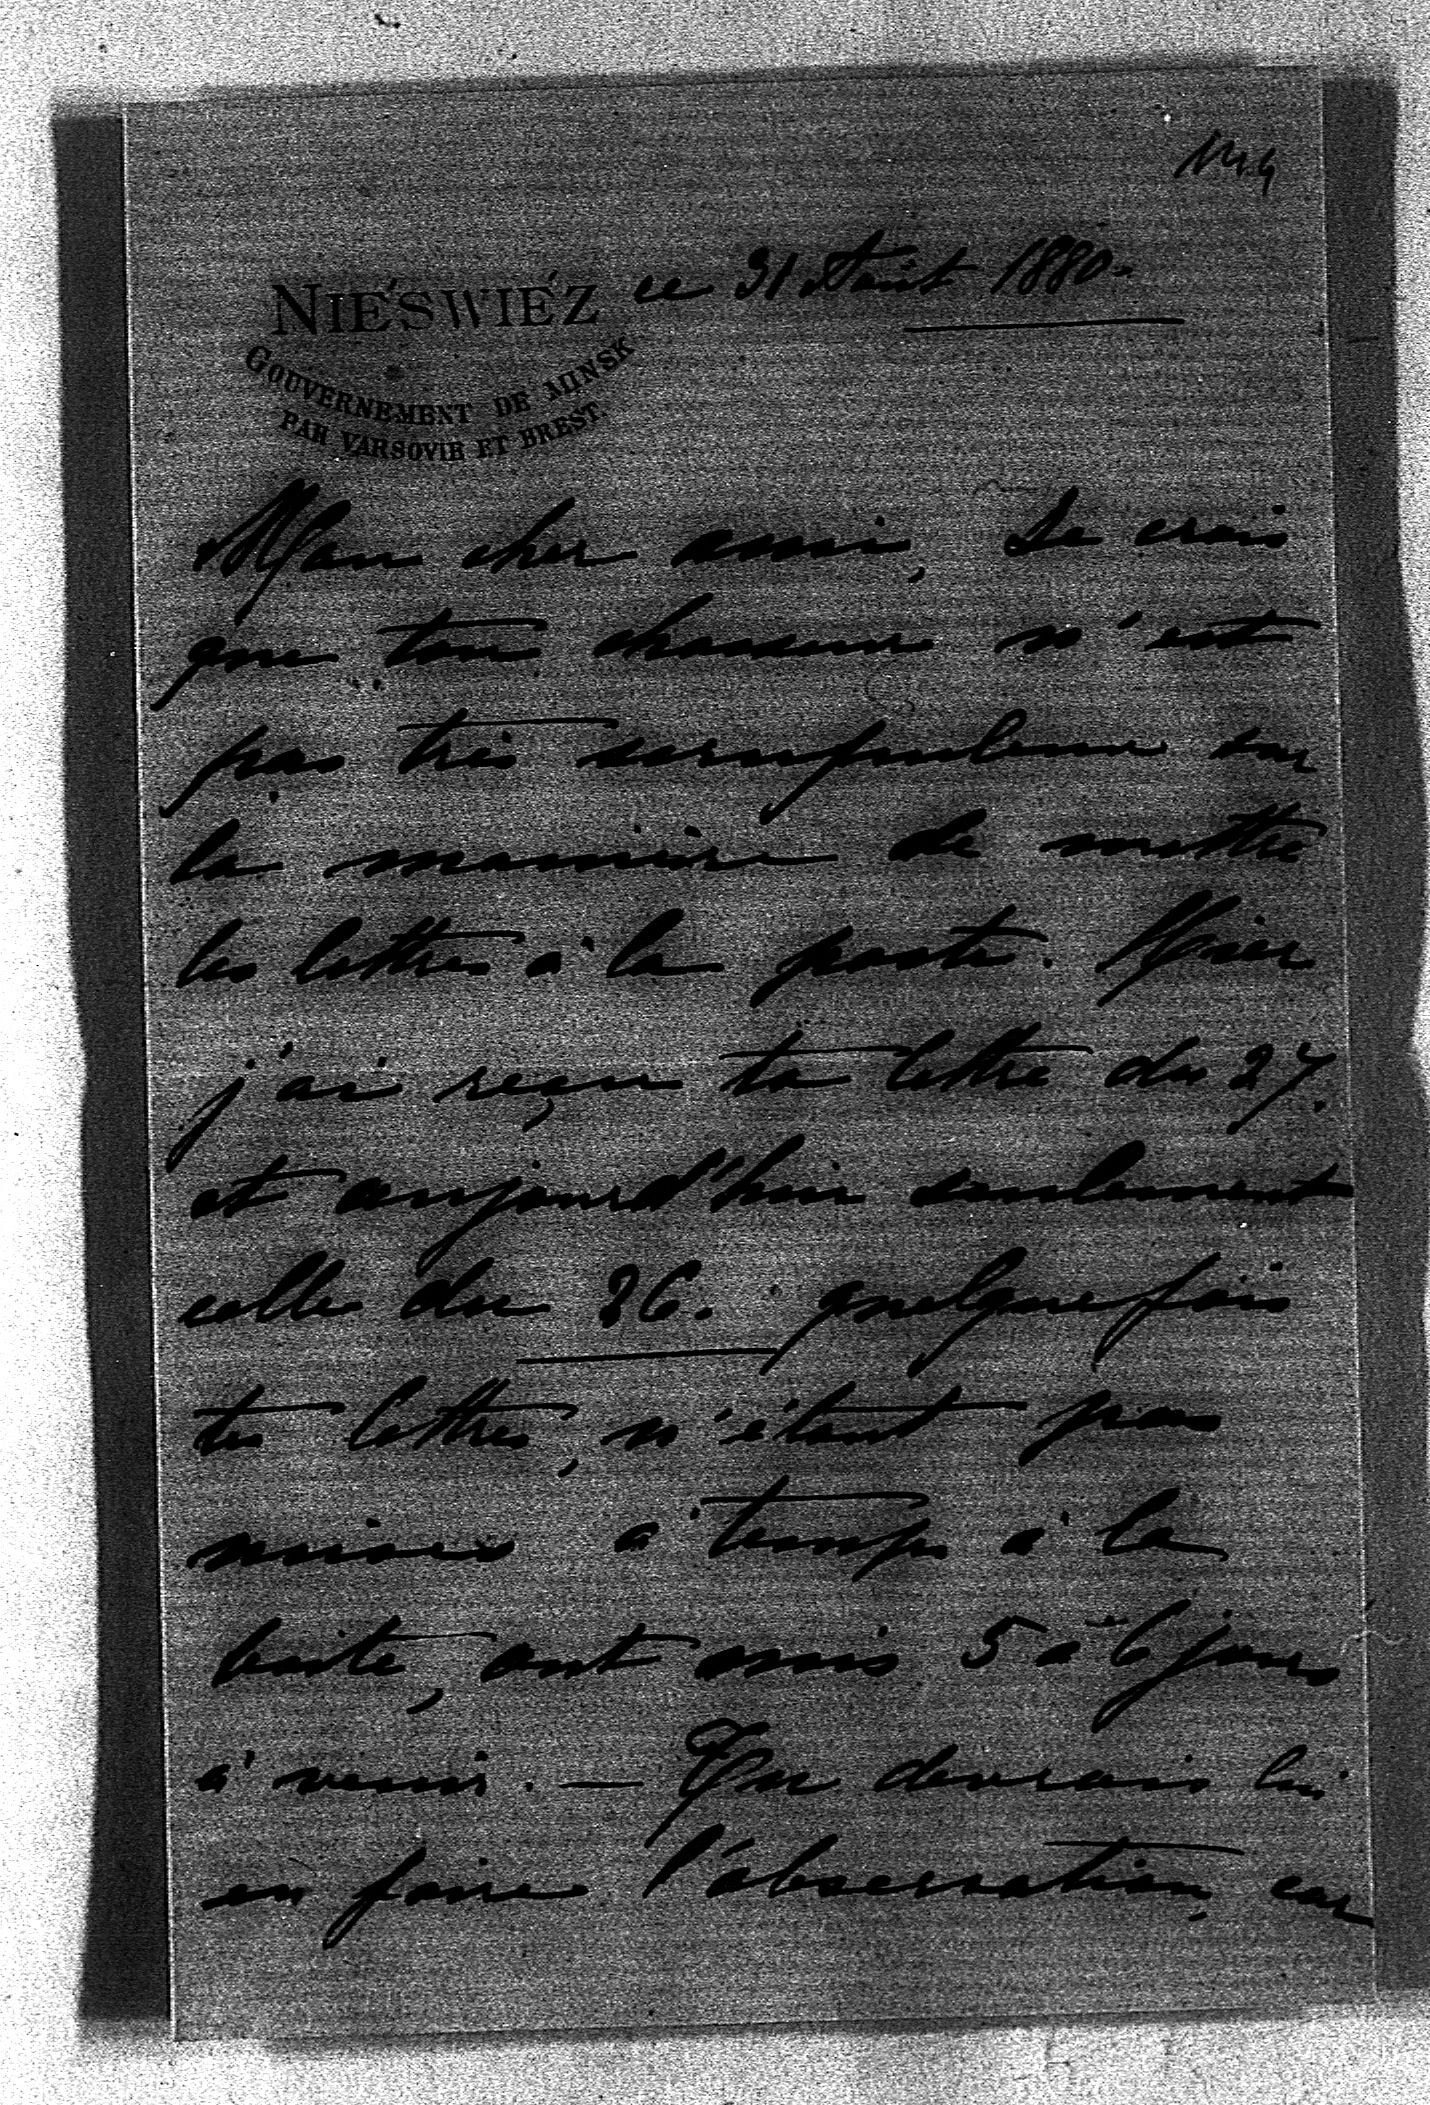 NIEŚWIEŹ ce 31 Août 1880.
GOUVERNEMENT DE MINSK
PAR VARSOVIE ET BREST.
Mon cher ami, Je crois
que ton chasseur n'est
pas très scrupuleux sur
la manière de mettre
les lettres à la poste. Hier
j'ai reçu ta lettre du 27.
et aujourd'hui seulement
celle du 26. quelquefois
tes lettres, n'étant pas
mises à temps à la
boite, ont mis 5 à 6 jours
à venir. — Tu devrais lui
en faire l'observation, car